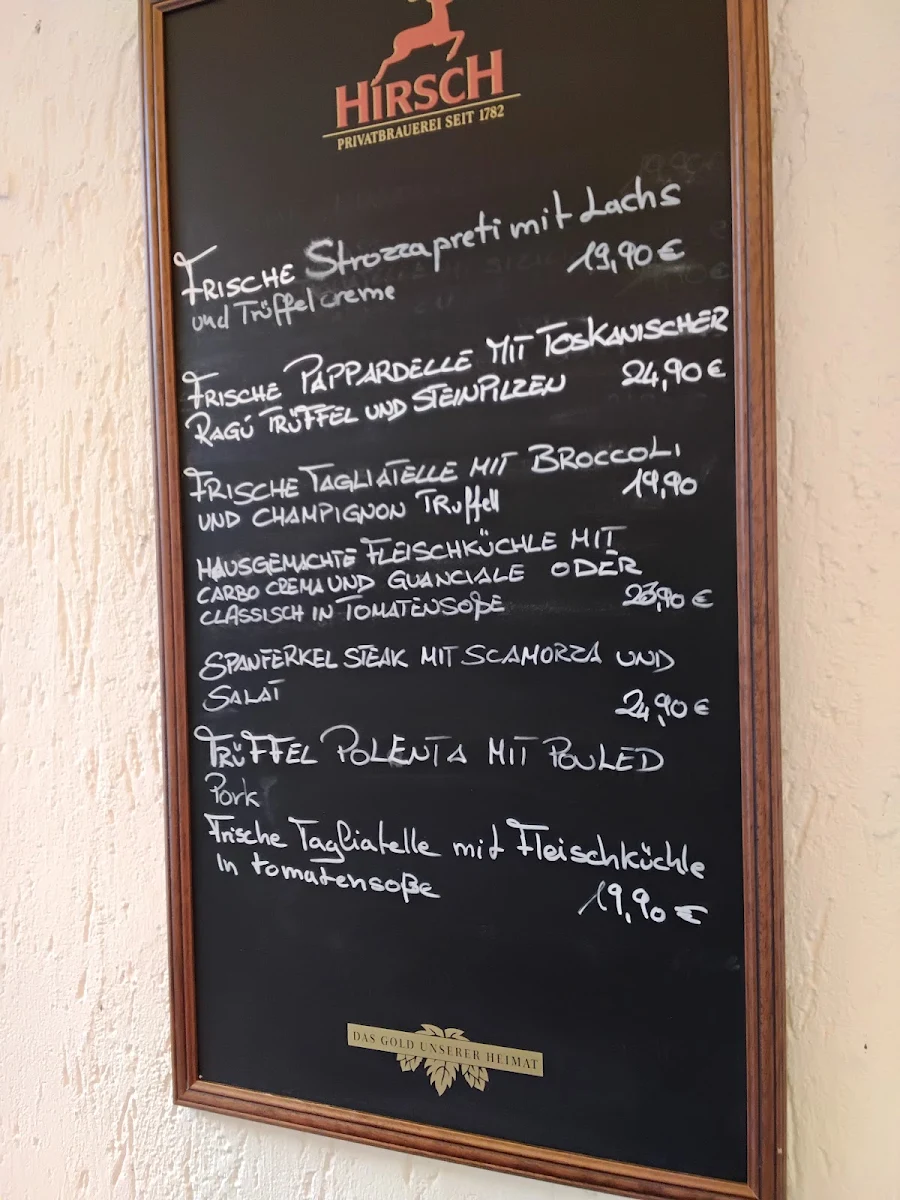 HIRSCH
PRIVATBRAUEREI SEIT 1782
FRISCHE Strozzapreti mit Lachs
und Trüffelcreme 19,90 €
FRISCHE PAPPARDELLE MIT TOSKANISCHER
RAGÚ TRÜFFEL UND STEINPILZEN 24,90 €
FRISCHE TAGLIATELLE MIT BROCCOLI
UND CHAMPIGNON TRuffell 19,90
HAUSGEMACHTE FLEISCHKÜCHLE MIT
CARBO CREMA UND GUANCIALE ODER
CLASSISCH IN TOMATENSOßE 23,90 €
SPANFERKEL STEAK MIT SCAMORZA UND
SALAT 24,90 €
TRÜFFEL POLENTA MIT POULED
Pork
Frische Tagliatelle mit Fleischküchle
In tomatensoße 19,90 €
DAS GOLD UNSERER HEIMAT